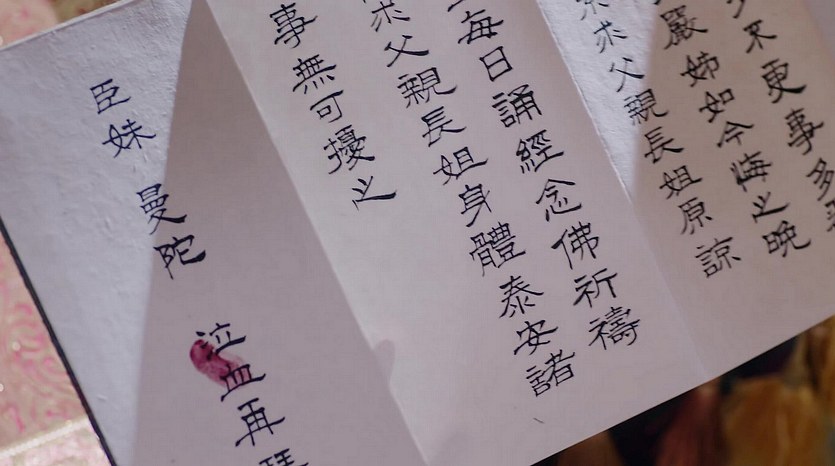 不更事多
嚴姊如今悔之晚
求父親長姐原諒
每日誦經念佛祈禱
求父親長姐身體泰安諸
事無可擾之
臣妹 曼陀 泣血再